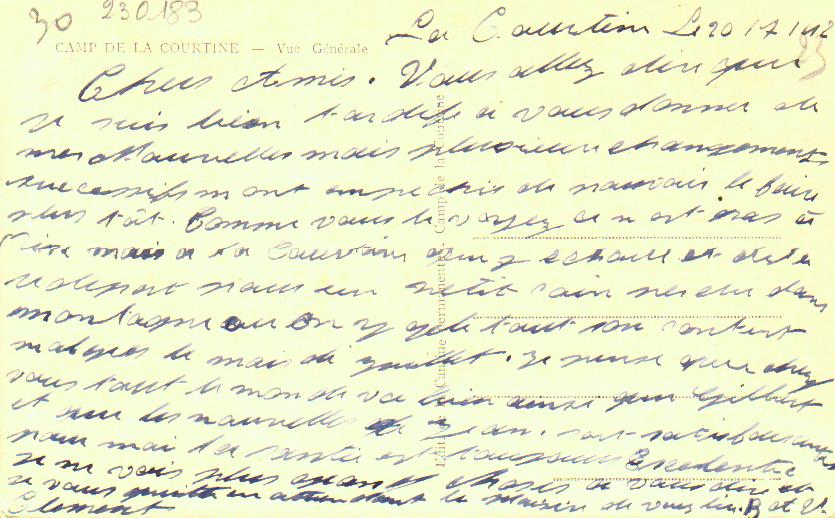 30 230183
La Courtine Le 20 17 1912
CAMP DE LA COURTINE — Vue Générale
23
Chers Amis. Vous allez dire que
je suis bien tardif a vous donner de
mes Nouvelles mais plusieurs changements
successifs mont empechés de pouvoir le faire
plus tôt. Comme vous le voyez ce n est pas à
mais a La Courtine que j
depart pour un petit coin perdu dans
montagne ou On y gele tout son content
malgres le mois de Juillet. Je pense que chez
vous tout le monde va bien ainsi que Gilbert
et que les nouvelles de Jean. sont satisfaisantes
pour moi la santé est toujours Excelente
je ne vois plus grand choses a vous dire et
je vous quitte en attendant le plaisir de vous lire. B et V.
Clement
Camp de la Courtine